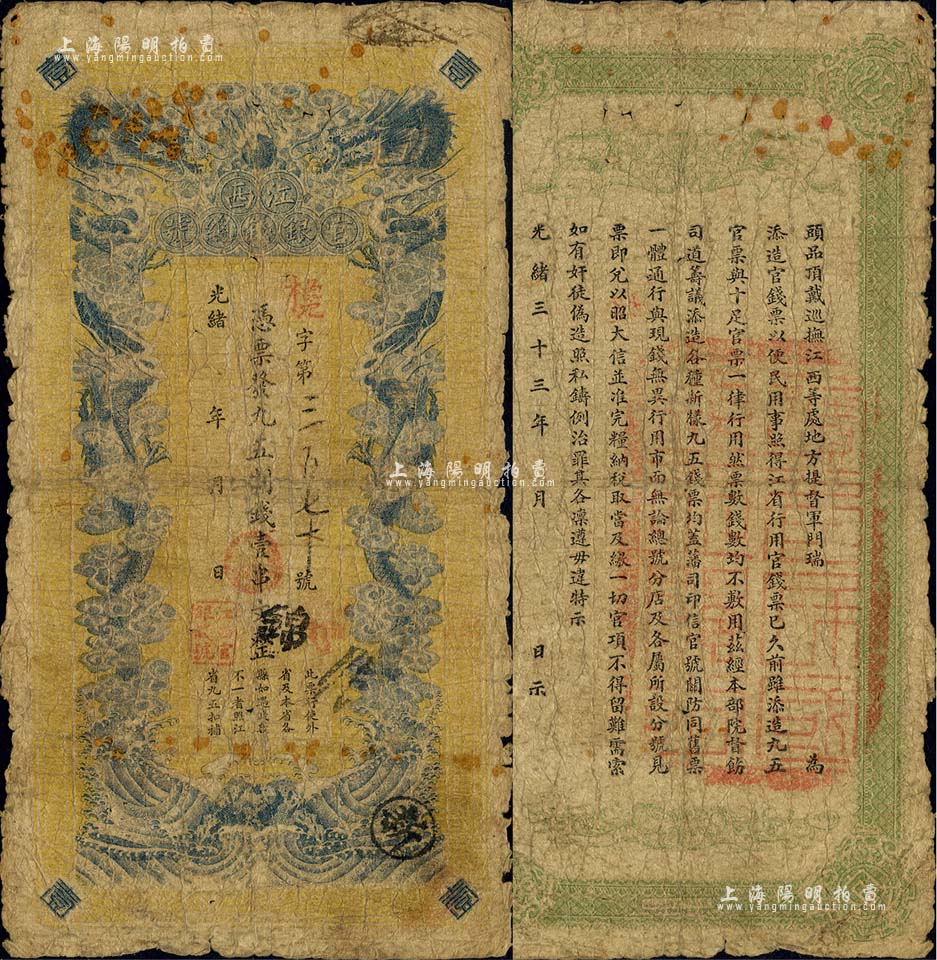 上海陽明拍賣
www.yangmingauction.com
壹
壹
江西
官銀錢總號
字第三百七十號
憑票發九五制錢壹串文整
光緒 年 月 日
此票行使外
省及本省各
縣如遇底串
不一者照江
省九五扣補
壹
壹
頭品頂戴巡撫江西等處地方提督軍門瑞 為
添造官錢票以便民用事照得江省行用官錢票已久前雖添造九五
官票與十足官票一律行用然票數錢數均不敷用茲經本部院督飭
司道籌議添造各種新樣九五錢票均蓋藩司印信官號關防同舊票
一體通行與現錢無異行用市面無論總號分店及各屬所設分號見
票即兌以昭大信並准完糧納稅取當及緣一切官項不得留難需索
如有奸徒偽造照私鑄例治罪其各凜遵毋違特示
光緒三十三年 月 日示
上海陽明拍賣
www.yangmingauction.com
上海陽明拍賣
www.yangmingauction.com